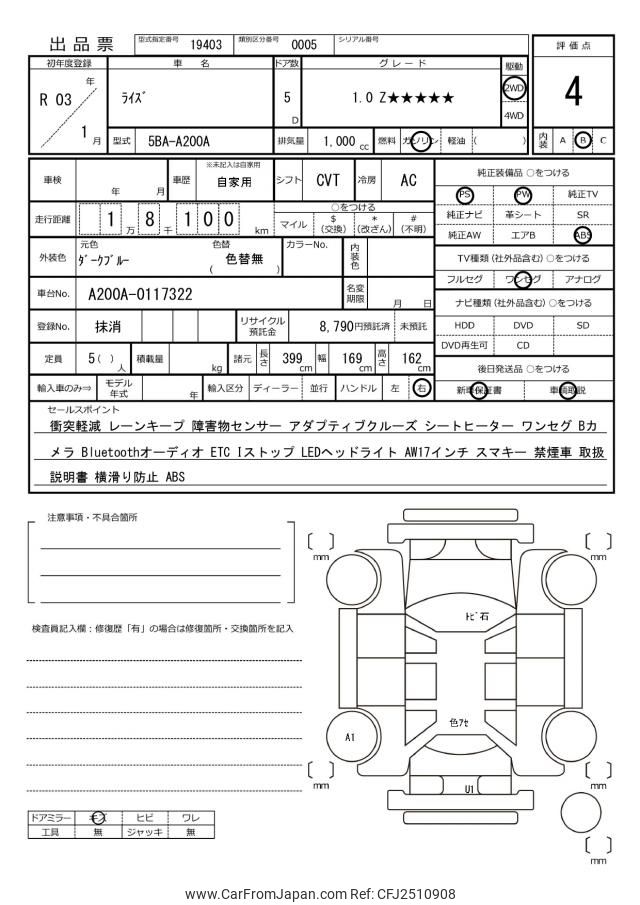 出品票
型式指定番号 19403 類別区分番号 0005 シリアル番号
初年度登録 車名 ドア数 グレード 駆動 評価点
R 03 年 1 月
ﾗｲｽﾞ 5 D 1.0 Z★★★★★ 2WD 4WD 4
型式 5BA-A200A 排気量 1,000 cc 燃料 ガソリン 軽油 ( ) 内装 A B C
車検 年 月 車歴 ※未記入は自家用 自家用 シフト CVT 冷房 AC
走行距離 1 万 8 千 1 0 0 km
○をつける
マイル $(交換) *(改ざん) #(不明)
外装色 元色 ﾀﾞｰｸﾌﾞﾙｰ 色替 ( 色替無 ) カラーNo. 内装色
車台No. A200A-0117322 名変期限 月 日
登録No. 抹消 リサイクル預託金 8,790円預託済 未預託
定員 5( ) 人 積載量 kg 諸元 長さ 399 cm 幅 169 cm 高さ 162 cm
輸入車のみ⇒ モデル年式 年 輸入区分 ディーラー 並行 ハンドル 左 右
純正装備品 ○をつける
PS PW 純正TV
純正ナビ 革シート SR
純正AW エアB ABS
TV種類 (社外品含む) ○をつける
フルセグ ワンセグ アナログ
ナビ種類 (社外品含む) ○をつける
HDD DVD SD
DVD再生可 CD
後日発送品 ○をつける
新車保証書 車輌取説
セールスポイント
衝突軽減 レーンキープ 障害物センサー アダプティブクルーズ シートヒーター ワンセグ Bカ
メラ Bluetoothオーディオ ETC Iストップ LEDヘッドライト AW17インチ スマキー 禁煙車 取扱
説明書 横滑り防止 ABS
注意事項・不具合箇所
検査員記入欄：修復歴「有」の場合は修復箇所・交換箇所を記入
mm
mm
ﾄﾋﾞ石
色ｱｾ
A1
U1
mm
mm
mm
ドアミラー キズ ヒビ ワレ
工具 無 ジャッキ 無
www.CarFromJapan.com Ref: CFJ2510908